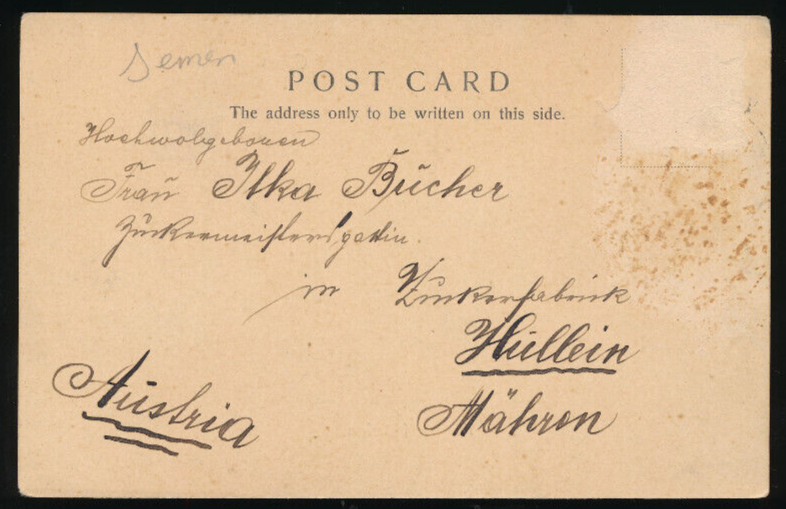 Jemen
POST CARD
The address only to be written on this side.
Hochwolgeboren
Frau Ilka Bücher
Zuckermeistersgattin.
in Zuckerfabrick
Hullein
Mähren
Austria